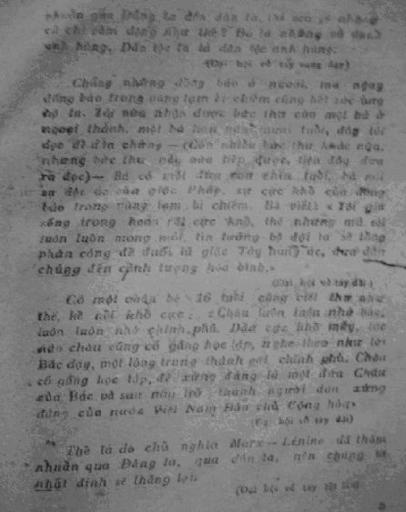 nhuần qua Đảng ta đến dân ta, thì sao có những
cử chỉ cảm động như thế? Đó là những vô danh
anh hùng. Dân tộc ta là dân tộc anh hùng.
(Đại hội vỗ tay vang dậy)
Chẳng những đồng bào ở ngoài, mà ngay
đồng bào trong vùng tạm bị chiếm cũng hết sức ủng
hộ ta. Tôi vừa nhận được bức thư của một bà ở
ngoại thành, một bà hơn năm mươi tuổi, đây tôi
đọc để dẫn chứng — (Còn nhiều bức thư khác nữa,
nhưng bức thư này vừa tiếp được, tiện đây đưa
ra đọc) — Bà có một đứa con chín tuổi, bà nói
sự độc ác của giặc Pháp, sự cực khổ của đồng
bào trong vùng tạm bị chiếm. Bà viết: « Tôi già
sống trong hoàn cực khổ, thế nhưng mà tôi
luôn luôn mong mỏi, tin tưởng bộ đội ta sẽ tổng
phản công để đuổi lũ giặc Tây hung ác, đưa dân
chúng đến cảnh tượng hòa bình.»
(Đại hội vỗ tay dài)
Có một cháu bé 16 tuổi cũng viết thư như
thế, kể nỗi khổ cực: «Cháu luôn luôn nhớ Bác,
luôn luôn nhớ chính phủ. Dầu cực khổ mấy, lúc
nào cháu cũng cố gắng học tập, nghe theo như lời
Bác dạy, một lòng trung thành với chính phủ. Cháu
cố gắng học tập, để xứng đáng là một đứa Cháu
của Bác và sau này trở thành người dân xứng
đáng của nước Việt Nam Dân chủ Cộng hòa»
(Đại hội vỗ tay dài)
Thế là do chủ nghĩa Marx — Lénine đã thấm
nhuần qua Đảng ta, qua dân ta, nên chúng ta
nhất định sẽ thắng lợi.
(Đại hội vỗ tay)